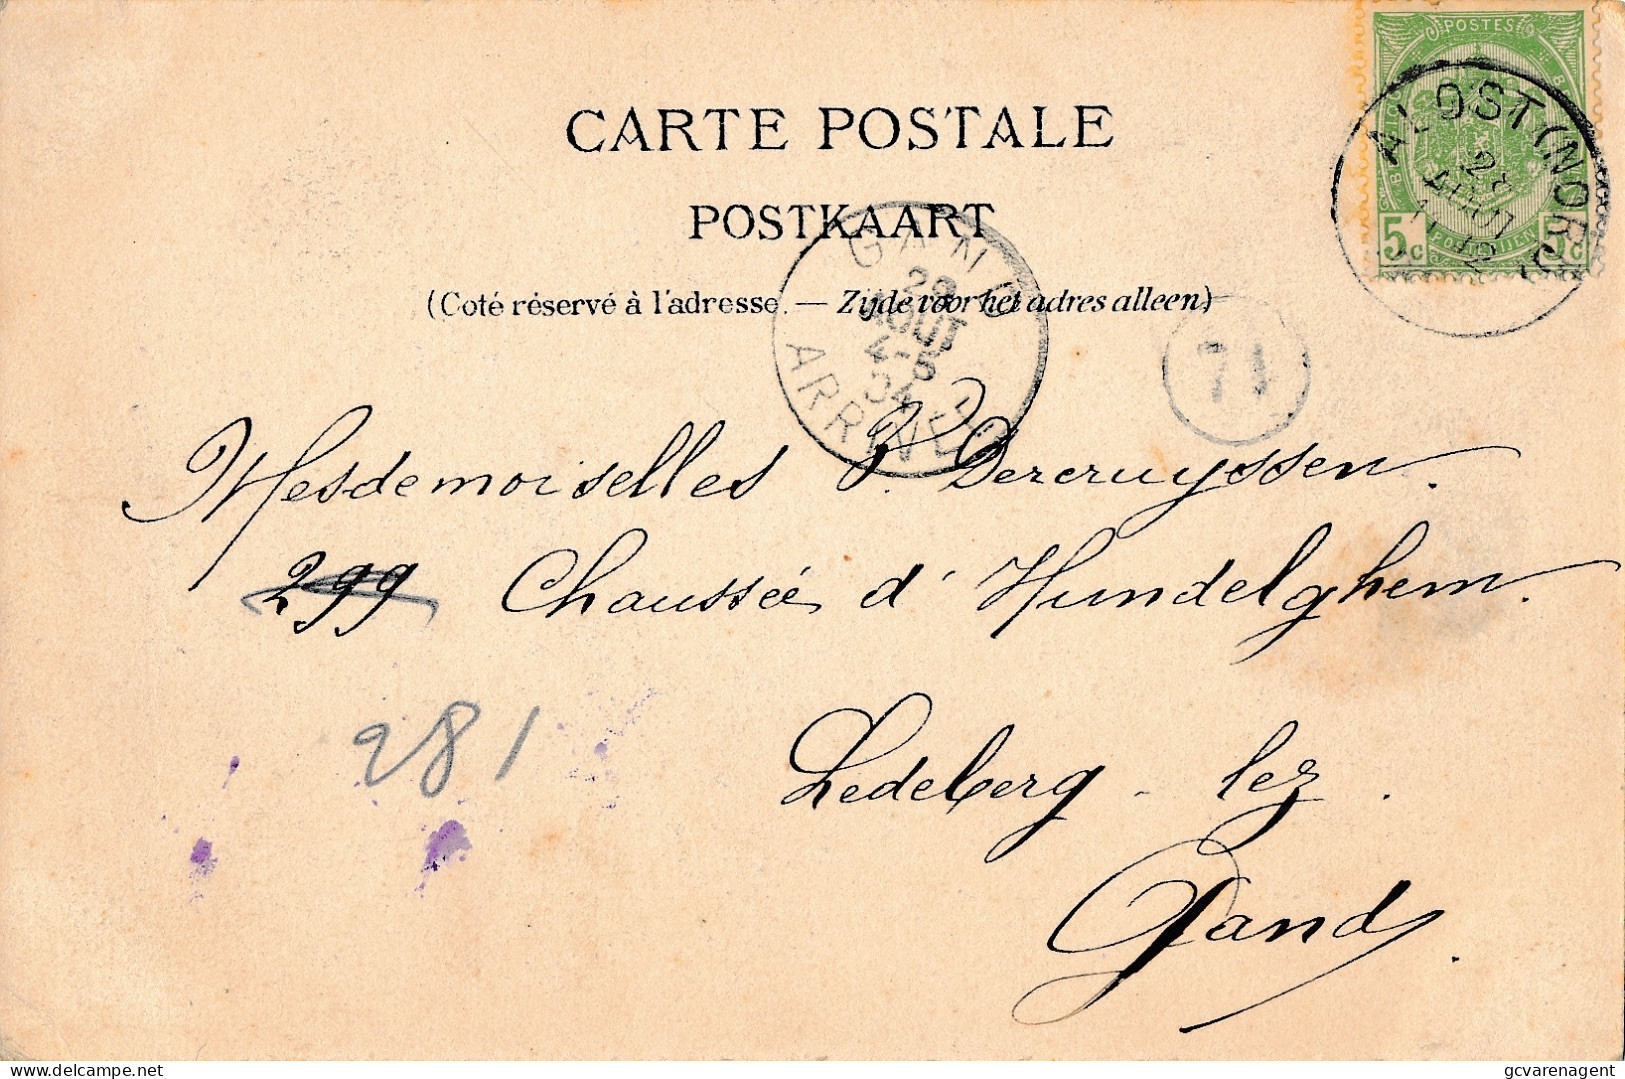 CARTE POSTALE
POSTKAART
(Coté réservé à l'adresse. — Zijde voor het adres alleen)
POSTES
5c POSTERIJEN 5c
ALOST (NORD)
28
AOUT
GAND
28
AOUT
4-5
04
71
Mesdemoiselles P. Dercruyssen.
299 Chaussée d' Hundelghem.
281
Ledeberg - lez.
Gand.
delcampe.net
gcvarenagent